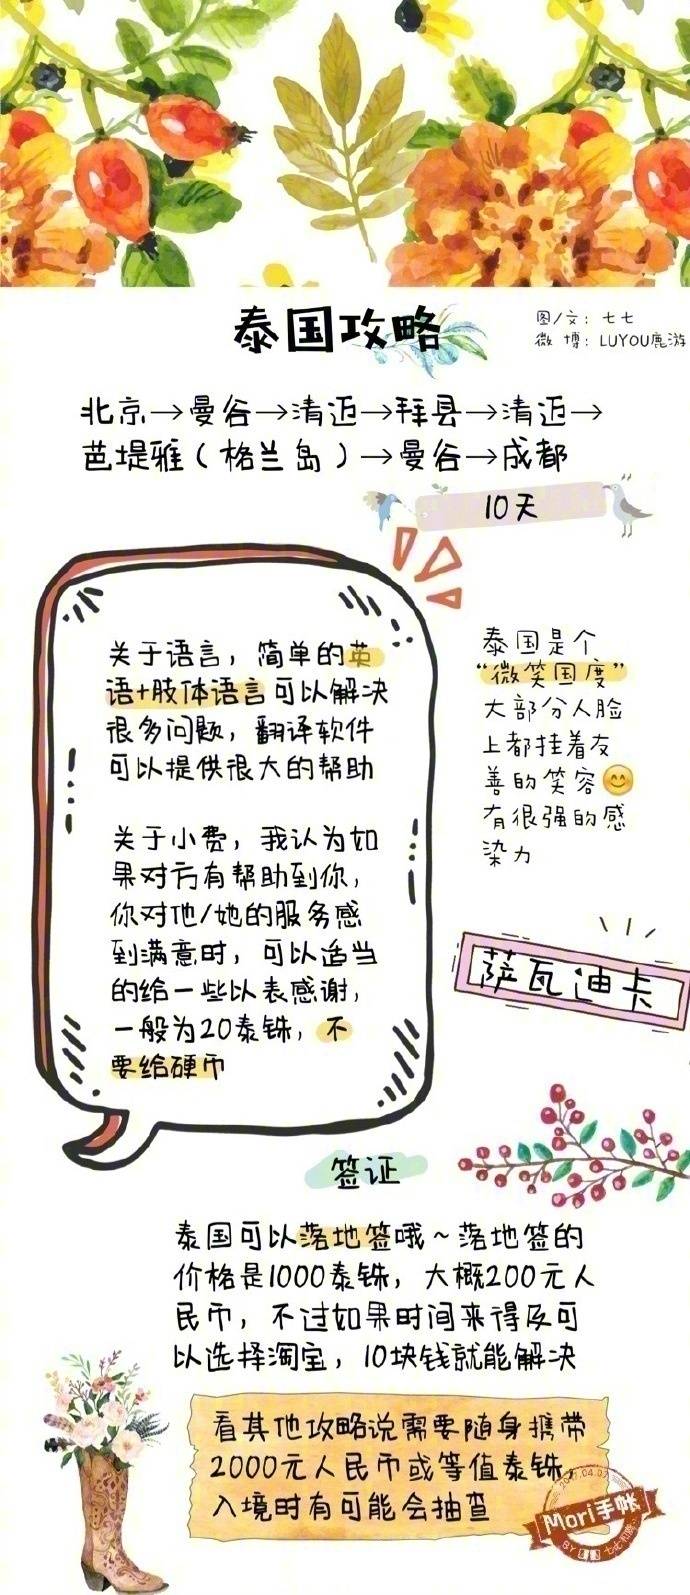 泰国攻略
图/文：七七
微 博：LUYOU鹿游
北京→曼谷→清迈→拜县→清迈→
芭堤雅（格兰岛）→曼谷→成都
10天
关于语言，简单的英
语+肢体语言可以解决
很多问题，翻译软件
可以提供很大的帮助
关于小费，我认为如
果对方有帮助到你，
你对他/她的服务感
到满意时，可以适当
的给一些以表感谢，
一般为20泰铢，不
要给硬币
泰国是个
“微笑国度”
大部分人脸
上都挂着友
善的笑容😊
有很强的感
染力
萨瓦迪卡
签证
泰国可以落地签哦~落地签的
价格是1000泰铢，大概200元人
民币，不过如果时间来得及可
以选择淘宝，10块钱就能解决
看其他攻略说需要随身携带
2000元人民币或等值泰铢，
入境时有可能会抽查
Mori手帐